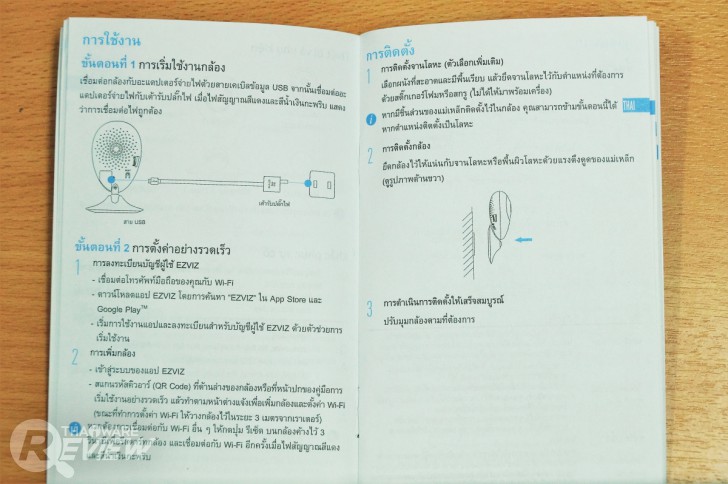 การใช้งาน
ขั้นตอนที่ 1 การเริ่มใช้งานกล้อง
เชื่อมต่อกล้องกับอะแดปเตอร์จ่ายไฟด้วยสายเคเบิลข้อมูล USB จากนั้นเชื่อมต่ออะ
แดปเตอร์จ่ายไฟกับเต้ารับปลั๊กไฟ เมื่อไฟสัญญาณสีแดงและสีน้ำเงินกะพริบ แสดง
ว่าการเชื่อมต่อไฟถูกต้อง
เต้ารับปลั๊กไฟ
สาย USB
ขั้นตอนที่ 2 การตั้งค่าอย่างรวดเร็ว
1 การลงทะเบียนบัญชีผู้ใช้ EZVIZ
- เชื่อมต่อโทรศัพท์มือถือของคุณกับ Wi-Fi
- ดาวน์โหลดแอป EZVIZ โดยการค้นหา "EZVIZ" ใน App Store และ
Google Play™
- เริ่มการใช้งานแอปและลงทะเบียนสำหรับบัญชีผู้ใช้ EZVIZ ด้วยตัวช่วยการ
เริ่มใช้งาน
2 การเพิ่มกล้อง
- เข้าสู่ระบบของแอป EZVIZ
- สแกนรหัสคิวอาร์ (QR Code) ที่ด้านล่างของกล้องหรือที่หน้าปกของคู่มือการ
เริ่มใช้งานอย่างรวดเร็ว แล้วทำตามหน้าต่างแจ้งเพื่อเพิ่มกล้องและตั้งค่า Wi-Fi
(ขณะที่ทำการตั้งค่า Wi-Fi ให้วางกล้องไว้ในระยะ 3 เมตรจากเราเตอร์)
หากต้องการเชื่อมต่อกับ Wi-Fi อื่น ๆ ให้กดปุ่ม รีเซ็ต บนกล้องค้างไว้ 3
กล้อง และเชื่อมต่อกับ Wi-Fi อีกครั้งเมื่อไฟสัญญาณสีแดง
และสีน้ำเงินกะพริบ
THAIWARE
REVIEW
การติดตั้ง
1 การติดตั้งจานโลหะ (ตัวเลือกเพิ่มเติม)
เลือกผนังที่สะอาดและมีพื้นเรียบ แล้วยึดจานโลหะไว้กับตำแหน่งที่ต้องการ
ด้วยสติ๊กเกอร์โฟมหรือสกรู (ไม่ได้ให้มาพร้อมเครื่อง)
i หากมีชิ้นส่วนของแม่เหล็กติดตั้งไว้ในกล้อง คุณสามารถข้ามขั้นตอนนี้ได้
หากตำแหน่งติดตั้งเป็นโลหะ
THAI
2 การติดตั้งกล้อง
ยึดกล้องไว้ให้แน่นกับจานโลหะหรือพื้นผิวโลหะด้วยแรงดึงดูดของแม่เหล็ก
(ดูรูปภาพด้านขวา)
3 การดำเนินการติดตั้งให้เสร็จสมบูรณ์
ปรับมุมกล้องตามที่ต้องการ